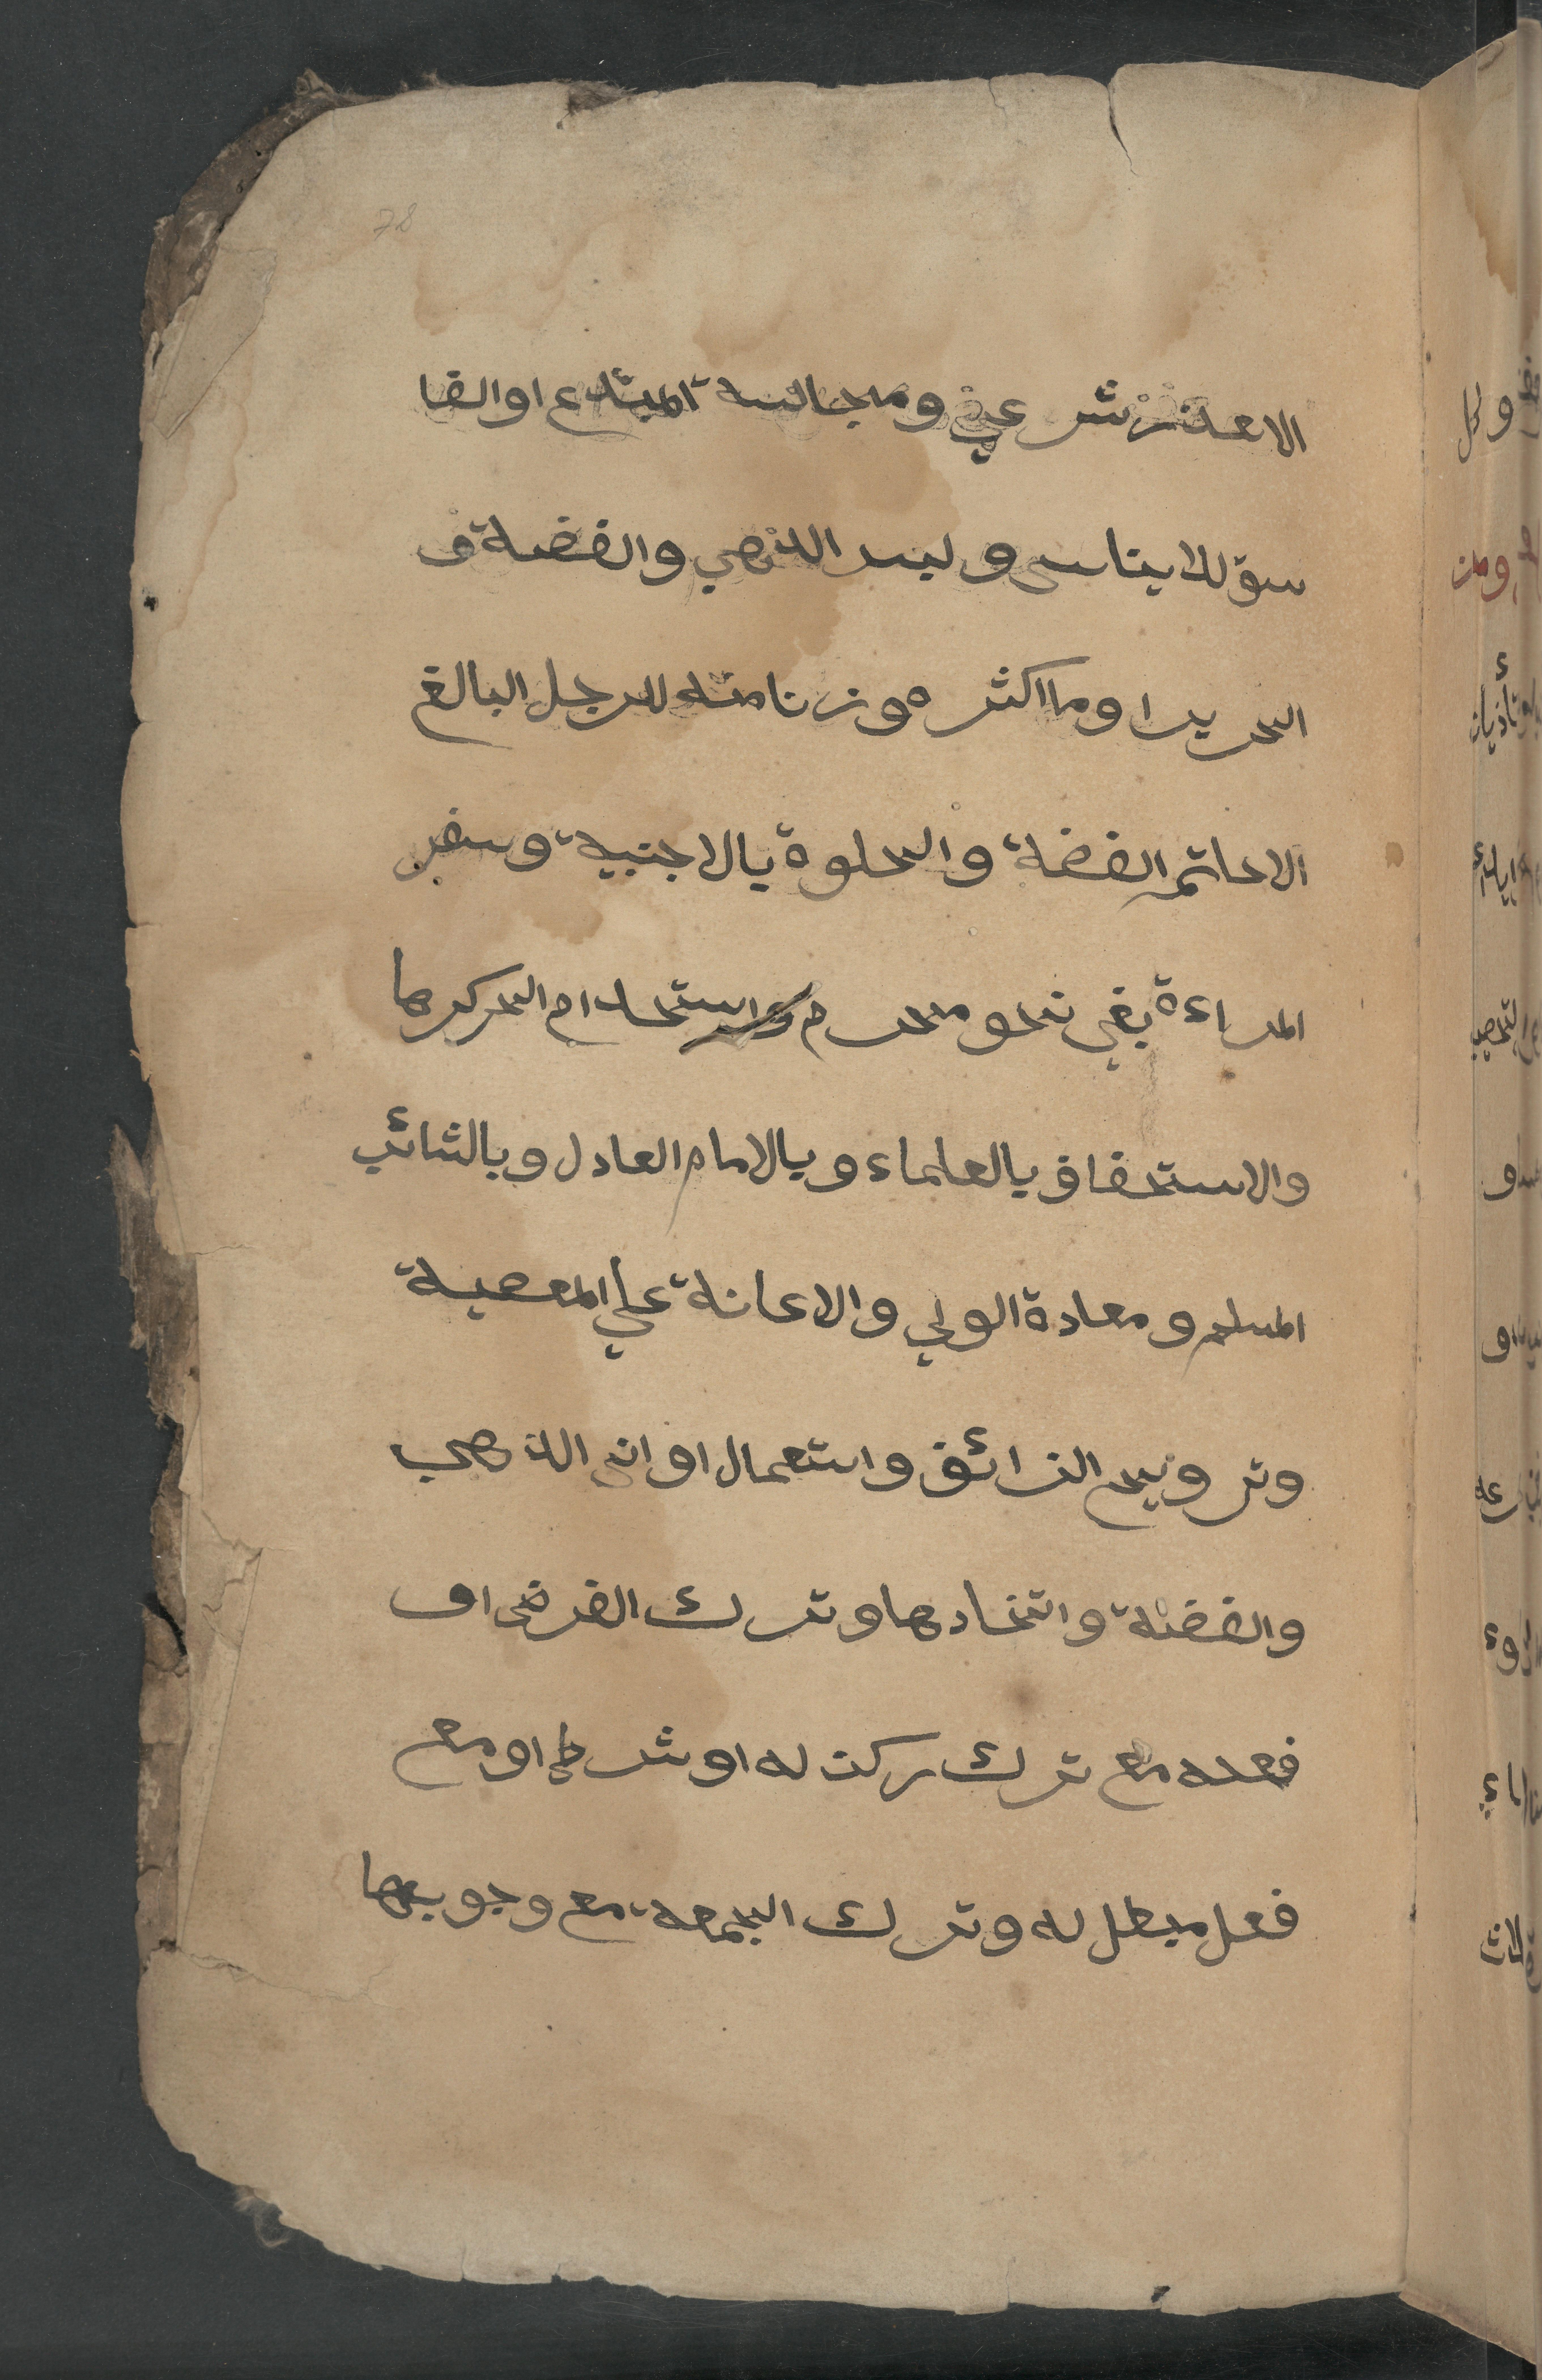 الا عذر شرعي ومجالسة المبتدع او الفا
سق للايناس ولبس الذهب والفضة و
الحرير او ما اكثره وزنا منه للرجل البالغ
الا خاتم الفضة والخلوة بالاجنبية وسفر
المراءة بغي نحو محرم واستخدام الحر كرها
والاستخفاف بالعلماء وبالامام العادل وبالشائب
المسلم ومعادة الولي والاعانة علي المعصية
وترويج الزائف واستعمال اواني الذهب
والفضة واتخادها وترك الفرض او
فعله مع ترك ركن له او شرط او مع
فعل مبطل له وترك الجمعة مع وجوبها